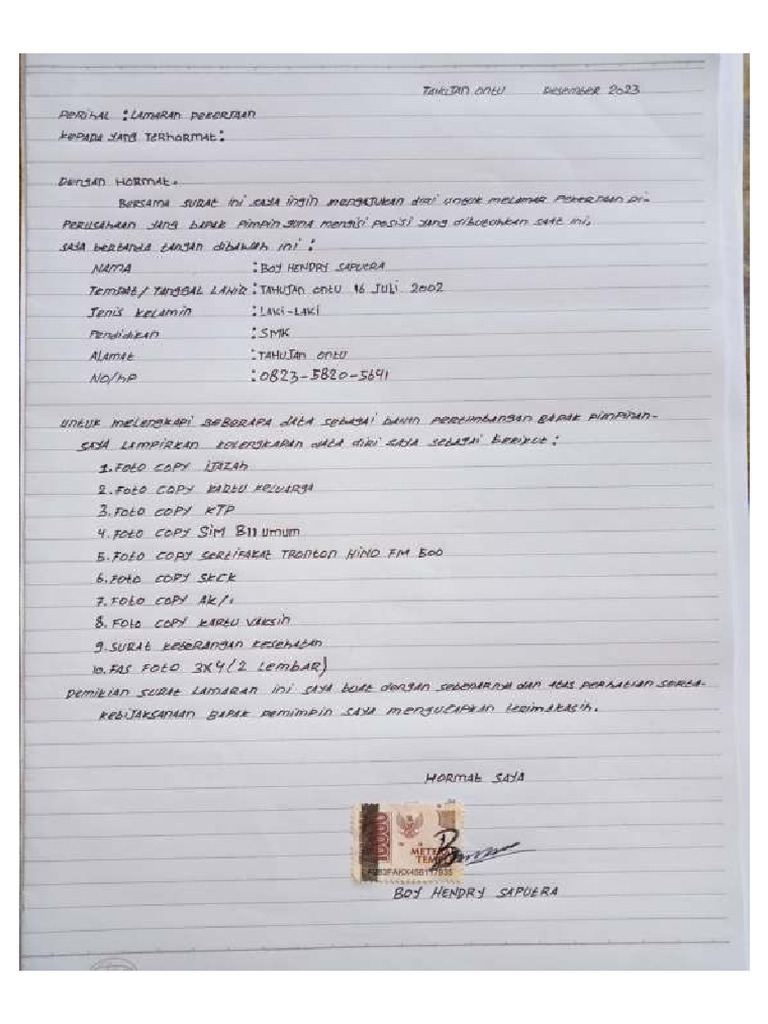 TAHUJAN ONTU DESEMBER 2023
PERIHAL : LAMARAN PEKERJAAN
KEPADA YANG TERHORMAT :
DENGAN HORMAT.
BERSAMA SURAT INI SAYA INGIN MENGAJUKAN DIRI UNTUK MELAMAR PEKERJAAN DI-
PERUSAHAAN YANG BAPAK PIMPIN GUNA MENGISI POSISI YANG DIBUTUHKAN SAAT INI,
SAYA BERTANDA TANGAN DIBAWAH INI :
NAMA : BOY HENDRY SAPUTRA
TEMPAT/ TANGGAL LAHIR : TAHUJAN ONTU 16 JULI 2002
JENIS KELAMIN : LAKI-LAKI
PENDIDIKAN : SMK
ALAMAT : TAHUJAN ONTU
NO/HP : 0823-5820-5691
UNTUK MELENGKAPI BEBERAPA DATA SEBAGAI BAHAN PERTIMBANGAN BAPAK PIMPINAN-
SAYA LAMPIRKAN KELENGKAPAN DATA DIRI SAYA SEBAGAI BERIKUT :
1. FOTO COPY IJAZAH
2. FOTO COPY KARTU KELUARGA
3. FOTO COPY KTP
4. FOTO COPY SIM BII UMUM
5. FOTO COPY SERTIFAKAT TRONTON HINO FM 500
6. FOTO COPY SKCK
7. FOTO COPY AK/1
8. FOTO COPY KARTU VAKSIN
9. SURAT KETERANGAN KESEHATAN
10. PAS FOTO 3X4 (2 LEMBAR)
DEMIKIAN SURAT LAMARAN INI SAYA BUAT DENGAN SEBENARNYA DAN ATAS PERHATIAN SERTA-
KEBIJAKSANAAN BAPAK PEMIMPIN SAYA MENGUCAPKAN TERIMAKASIH.
HORMAT SAYA
METE
TEM
BOY HENDRY SAPUTRA